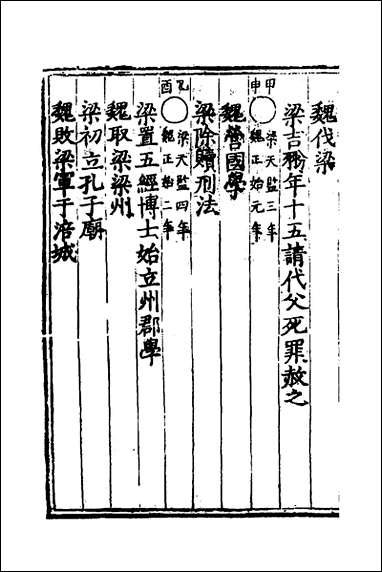 魏伐梁
梁吉翂年十五請代父死罪赦之
甲申 梁天監三年 魏正始元年
魏營國學
梁除贖刑法
乙酉 梁天監四年 魏正始二年
梁置五經博士始立州郡學
魏取梁梁州
梁初立孔子廟
魏敗梁軍于涪城